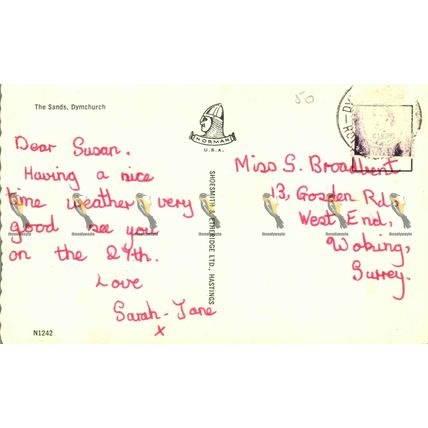 The Sands, Dymchurch
50
Dear Susan.
Having a nice
time weather very
good see you
on the 29th.
Love
Sarah-Jane
x
N1242
NORMAN
U.S.A.
SHOESMITH & ETHERIDGE LTD., HASTINGS
Miss S. Broadbent
13, Gosden Rd,
West End,
Woking,
Surrey.